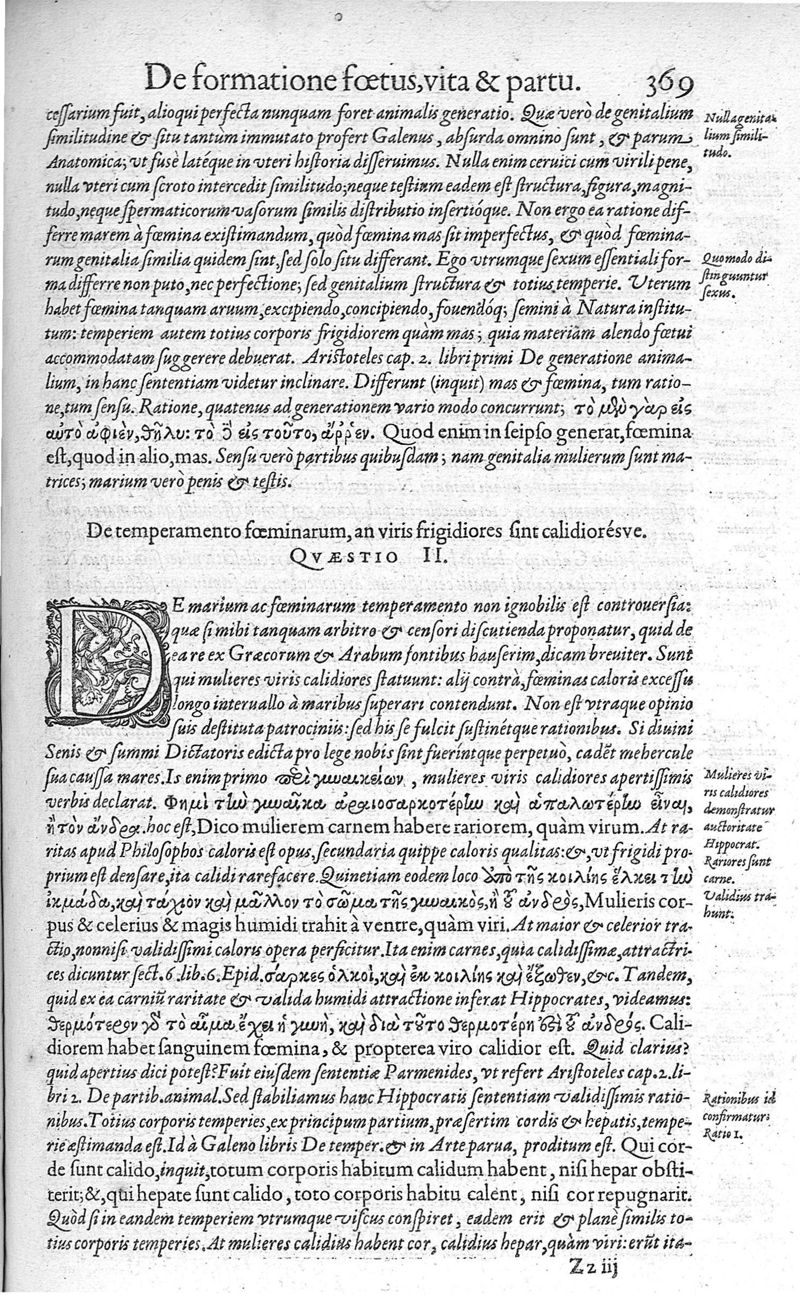 De formatione fœtus, vita & partu. 369
cessarium fuit, alioqui perfecta nunquam foret animalis generatio. Quæ verò de genitalium
similitudine & situ tantùm immutato profert Galenus, absurda omnino sunt, & parum
Anatomica; vt fusè latéque in vteri historia disseruimus. Nulla enim ceruici cum virili pene,
nulla vteri cum scroto intercedit similitudo; neque testium eadem est structura, figura, magni-
tudo, neque spermaticorum vasorum similis distributio insertióque. Non ergo ea ratione dif-
ferre marem à fœmina existimandum, quòd fœmina mas sit imperfectus, & quòd fœmina-
rum genitalia similia quidem sint, sed solo situ differant. Ego vtrumque sexum essentiali for-
ma differre non puto, nec perfectione; sed genitalium structura & totius temperie. Vterum
habet fœmina tanquam aruum, excipiendo, concipiendo, fouendóq; semini à Natura institu-
tum: temperiem autem totius corporis frigidiorem quàm mas; quia materiam alendo fœtui
accommodatam suggerere debuerat. Aristoteles cap. 2. libri primi De generatione anima-
lium, in hanc sententiam videtur inclinare. Differunt (inquit) mas & fœmina, tum ratio-
ne, tum sensu. Ratione, quatenus ad generationem vario modo concurrunt; τὸ μὲν γὰρ εἰς
αυτὸ αφιὲν, θῆλυ: τὸ δὲ εις τοῦτο, αῤῥεν. Quod enim in seipso generat, fœmina
est, quod in alio, mas. Sensu verò partibus quibusdam; nam genitalia mulierum sunt ma-
trices; marium verò penis & testis.
Nulla genita-
lium simili-
tudo.
Quomodo di-
stinguuntur
sexus.
De temperamento fœminarum, an viris frigidiores sint calidiorésve.
QVÆSTIO II.
DE marium ac fœminarum temperamento non ignobilis est controuersia:
quæ si mihi tanquam arbitro & censori discutienda proponatur, quid de
ea re ex Græcorum & Arabum fontibus hauserim, dicam breuiter. Sunt
qui mulieres viris calidiores statuunt: alij contrà, fœminas caloris excessu
longo interuallo à maribus superari contendunt. Non est vtraque opinio
suis destituta patrociniis: sed his se fulcit sustinétque rationibus. Si diuini
Senis & summi Dictatoris edicta pro lege nobis sint fuerintque perpetuò, cadét mehercule
sua caussa mares. Is enim primo περὶ γυναικείων, mulieres viris calidiores apertissimis
verbis declarat. Φημὶ τὴν γυναῖκα αραιοσαρκοτέρην καὶ ἁπαλωτέρην εἶναι,
ἢ τὸν ἄνδρα. hoc est, Dico mulierem carnem habere rariorem, quàm virum. At ra-
ritas apud Philosophos caloris est opus, secundaria quippe caloris qualitas: &, vt frigidi pro-
prium est densare, ita calidi rarefacere. Quinetiam eodem loco ἀπὸ τῆς κοιλίης ἕλκει τὴν
ἰκμάδα, καὶ τάχιον καὶ μᾶλλον τὸ σῶμα τῆς γυναικὸς, ἢ τοῦ ἀνδρὸς, Mulieris cor-
pus & celerius & magis humidi trahit à ventre, quàm viri. At maior & celerior tra-
ctio, nonnisi validissimi caloris opera perficitur. Ita enim carnes, quia calidissimæ, attractri-
ces dicuntur sect. 6. lib. 6. Epid. σάρκες ὁλκοὶ, καὶ ἐκ κοιλίης καὶ ἔξωθεν, &c. Tandem,
quid ex ea carniũ raritate & valida humidi attractione inferat Hippocrates, videamus:
θερμότερον γὰρ τὸ αἷμα ἔχει ἡ γυνὴ, καὶ διὰ τοῦτο θερμοτέρη ἐστὶ τοῦ ἀνδρὸς. Cali-
diorem habet sanguinem fœmina, & propterea viro calidior est. Quid clarius?
quid apertius dici potest? Fuit eiusdem sententiæ Parmenides, vt refert Aristoteles cap. 2. li-
bri 2. De partib. animal. Sed stabiliamus hanc Hippocratis sententiam validissimis ratio-
nibus. Totius corporis temperies, ex principum partium, præsertim cordis & hepatis, tempe-
rie æstimanda est. Id à Galeno libris De temper. & in Arte parua, proditum est. Qui cor-
de sunt calido, inquit, totum corporis habitum calidum habent, nisi hepar obsti-
terit; &, qui hepate sunt calido, toto corporis habitu calent, nisi cor repugnarit.
Quòd si in eandem temperiem vtrumque viscus conspiret, eadem erit & planè similis to-
tius corporis temperies. At mulieres calidius habent cor, calidius hepar, quàm viri: erũt ita-
Mulieres vi-
ris calidiores
demonstratur
auctoritate
Hippocrat.
Rariores sunt
carne.
Validius tra-
hunt.
Rationibus id
confirmatur:
Ratio 1.
Zz iij